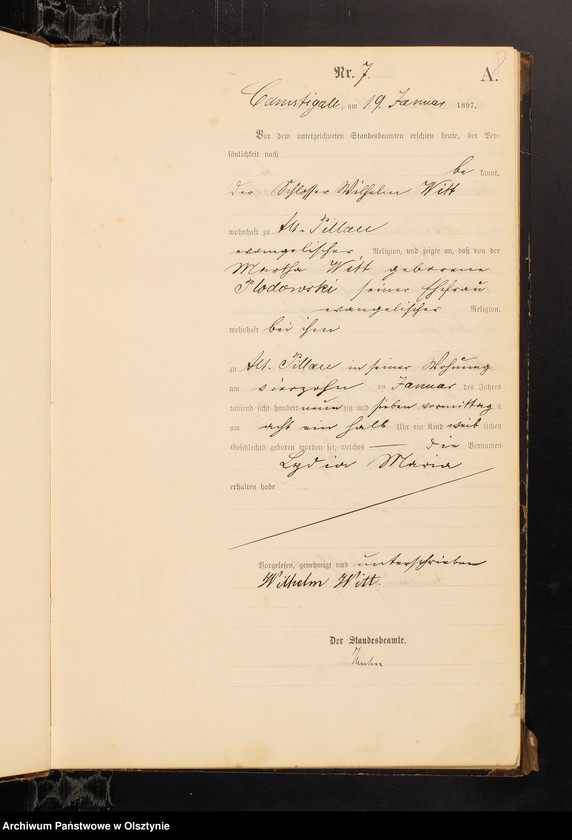 Nr. 7.
A.
8
Camstigall, am 19. Januar 1897.
Vor dem unterzeichneten Standesbeamten erschien heute, der Per-
sönlichkeit nach
be kannt,
der Schlosser Wilhelm Witt
wohnhaft zu Alt-Pillau
evangelischer Religion, und zeigte an, daß von der
Martha Witt geborene
Plodowski seiner Ehefrau
evangelischer Religion,
wohnhaft bei ihm
zu Alt-Pillau in seiner Wohnung
am vierzehn ten Januar des Jahres
tausend acht hundert neun zig und sieben vormittag s
um acht ein halb Uhr ein Kind weib lichen
Geschlechts geboren worden sei, welches — die Vornamen
Lydia Maria
erhalten habe
Vorgelesen, genehmigt und unterschrieben
Wilhelm Witt.
Der Standesbeamte.
Archiwum Państwowe w Olsztynie